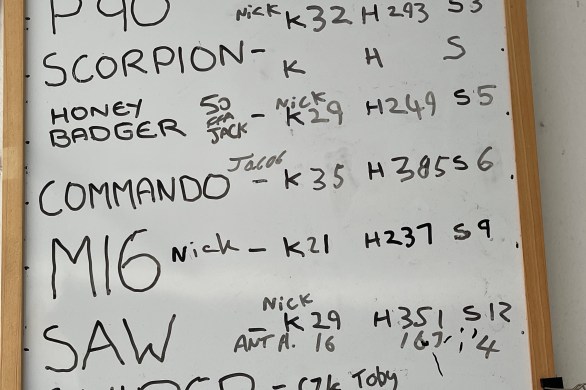 P90 Nick K32 H293 S3
SCORPION - K H S
HONEY BADGER 50 JACK - Nick K29 H249 S5
COMMANDO Jacob - K35 H385 S6
M16 Nick - K21 H237 S9
SAW - Nick K29 H351 S12
ANT A. 16 167 4
Toby